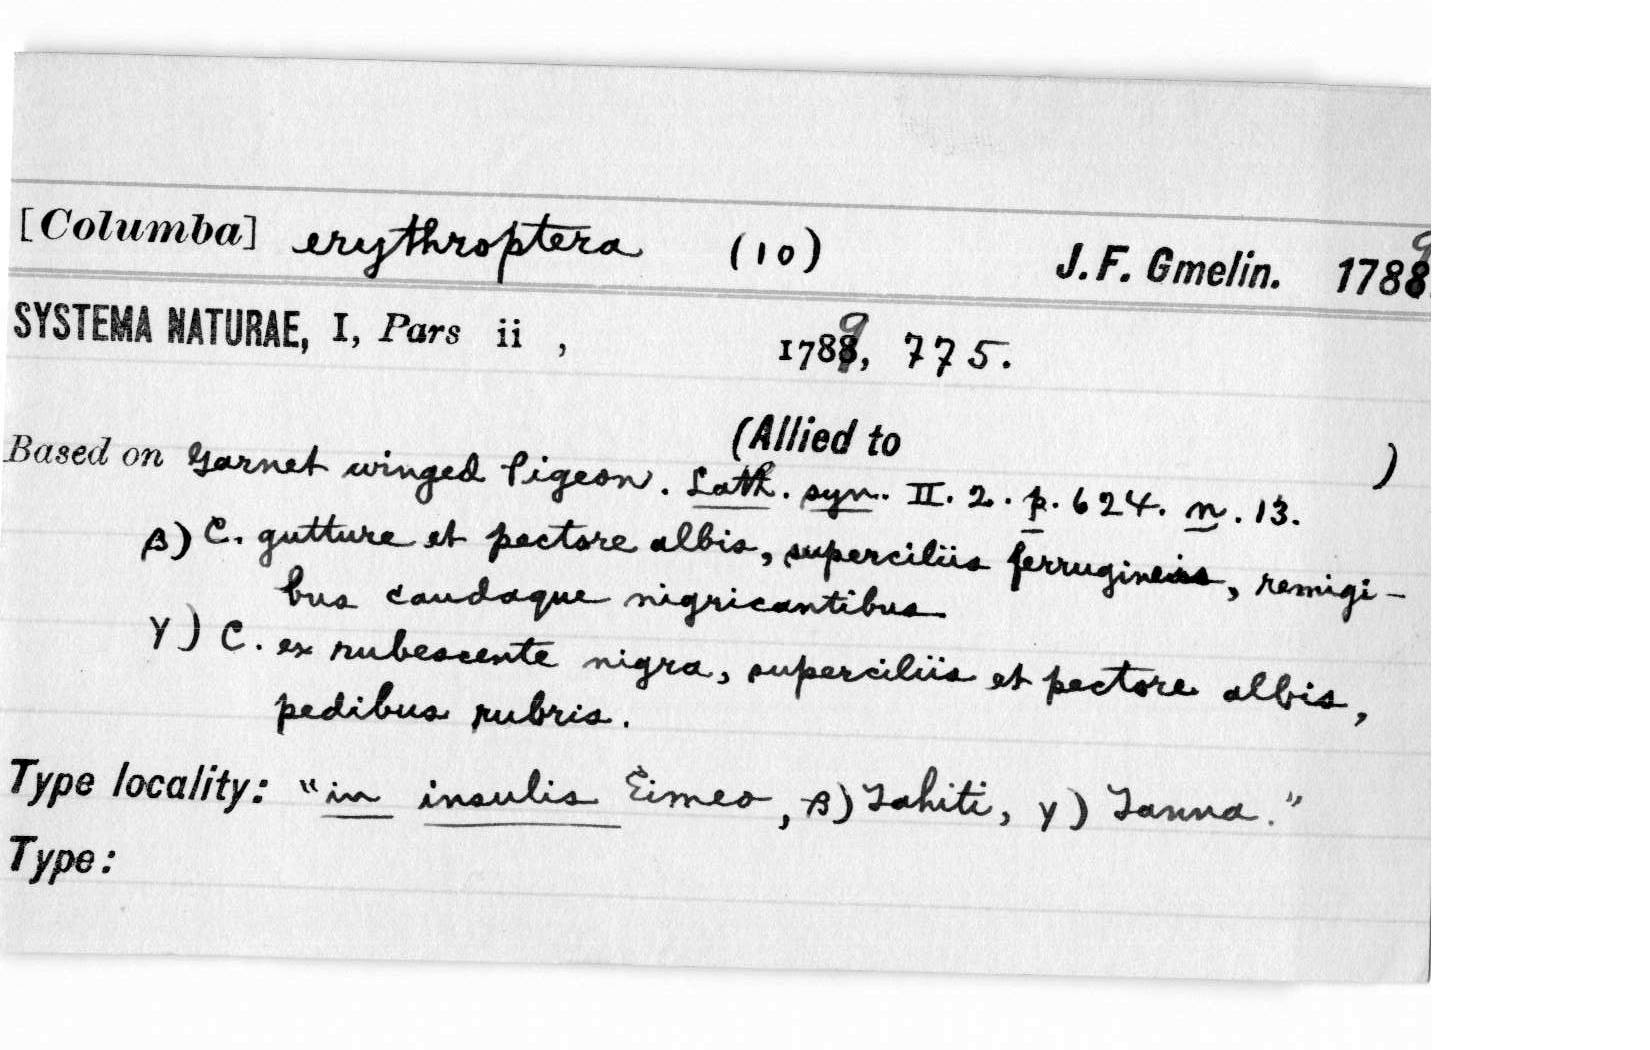 [Columba] erythroptera (10) J. F. Gmelin. 1789
SYSTEMA NATURAE, I, Pars ii , 1789, 775.
(Allied to )
Based on Garnet winged Pigeon. Lath. syn. II. 2. p. 624. n. 13.
β) C. gutture et pectore albis, superciliis ferrugineis, remigi-
bus caudaque nigricantibus
γ) C. ex rubescente nigra, superciliis et pectore albis,
pedibus rubris.
Type locality: "in insulis Eimeo, β) Tahiti, γ) Tanna."
Type: